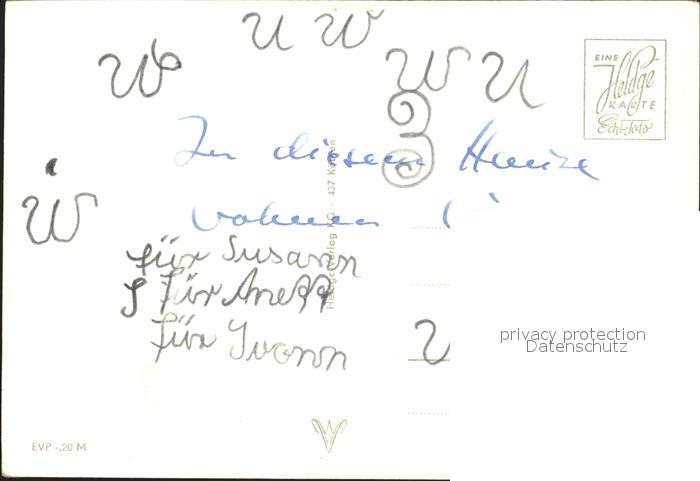 U W
W
W U
EINE
Heldge
KARTE
Echt-Foto
In diesem Hause
wohnen
W
für Susann
für Anett
für Yvonn
Heldge-Verlag KG · 437 Köthen
U
privacy protection
Datenschutz
EVP -,20 M